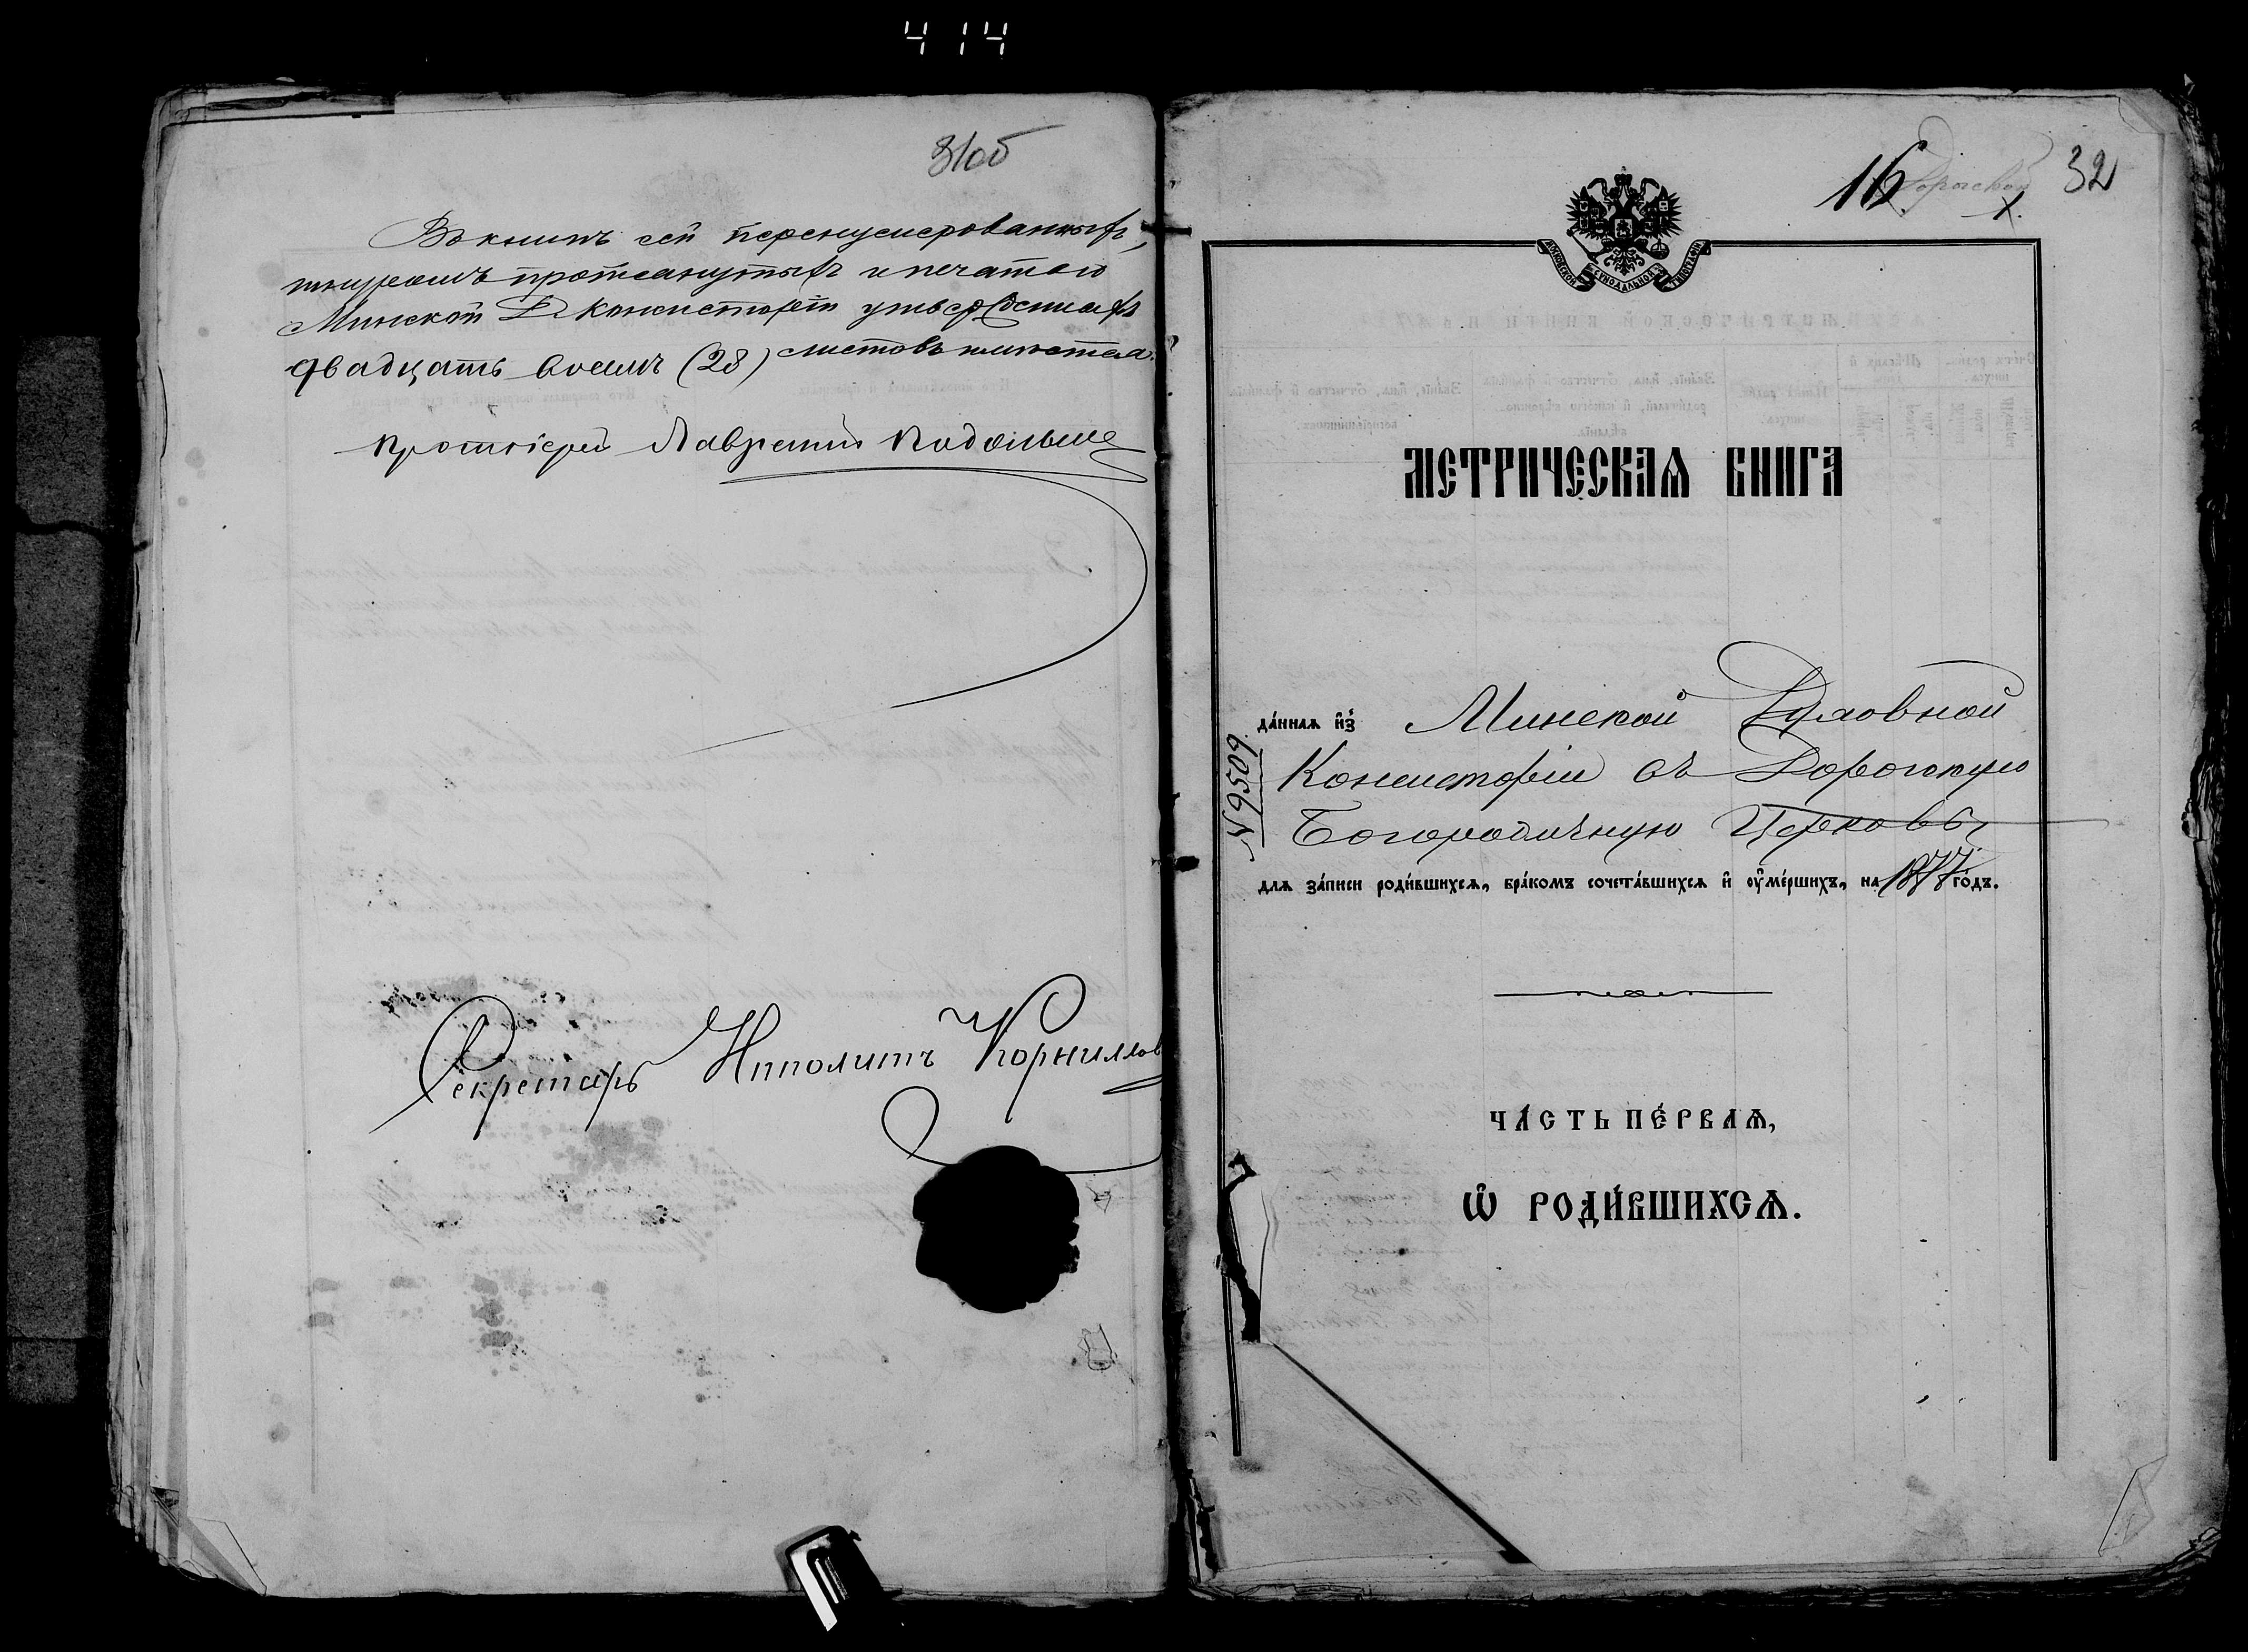 414
31об
Въ книгѣ сей перенумерованныхъ,
шнуромъ протянутыхъ и печатью
Минской Д Консисторіи утвержденныхъ
двадцать восемь (28) листовъ имѣется.
Протоіерей Лаврентій
Секретарь Ипполитъ Корниллов
16
32
1.
МОСКОВСКОЙ СѴНОДАЛЬНОЙ ТИПОГРАФІИ
МЕТРИЧЕСКАѦ КНИГА
да́ннаѧ и҆з̾ Минской Духовной
Консисторіи въ Дорогскую
Богородичную Церковь,
№ 9509.
длѧ за́писи роди́вшихсѧ, бра́комъ сочета́вшихсѧ и҆ ᲂу҆ме́ршихъ, на 1877 го́дъ.
ЧА́СТЬ ПЕ́РВАѦ,
Ѽ РОДИ́ВШИХСѦ.